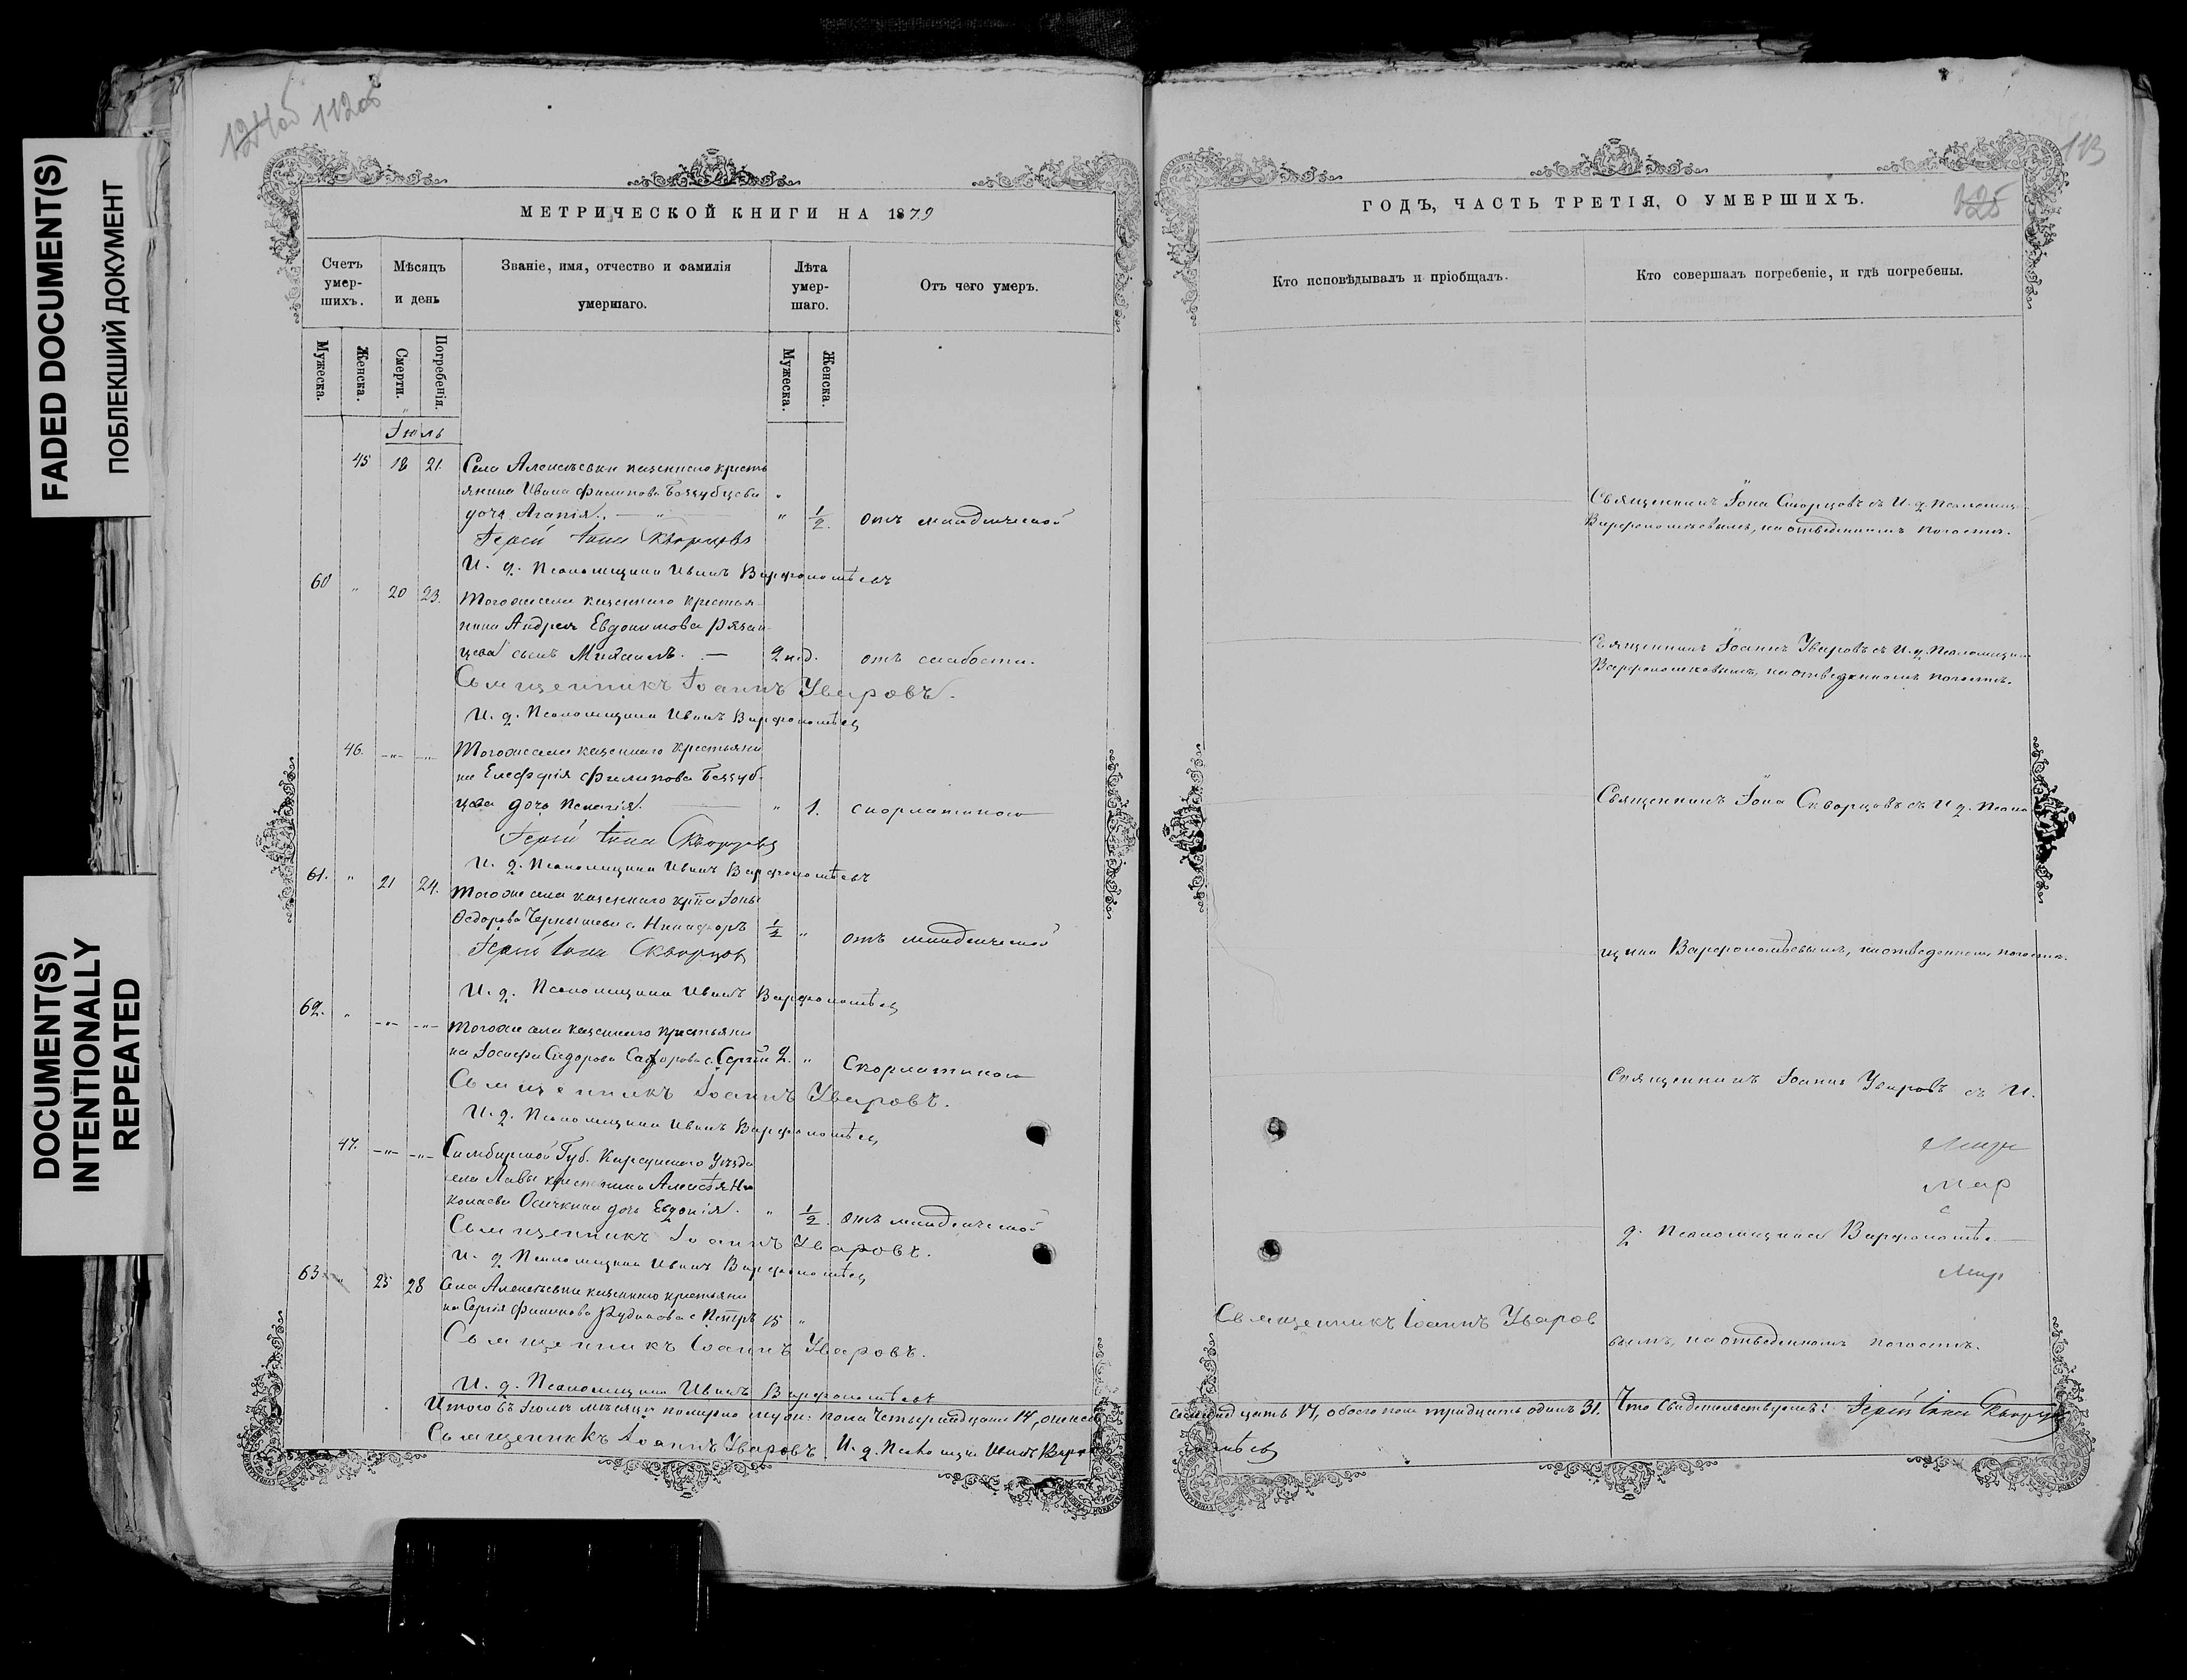 FADED DOCUMENT(S)
ПОБЛЕКШИЙ ДОКУМЕНТ
DOCUMENT(S)
INTENTIONALLY
REPEATED
124об 112об
МЕТРИЧЕСКОЙ КНИГИ НА 1879
Счетъ умер-шихъ.
Мѣсяцъ и день
Званіе, имя, отчество и фамилія умершаго.
Лѣта умер-шаго.
Отъ чего умеръ.
Мужеска.
Женска.
Смерти.
Погребенія.
Мужеска.
Женска.
Іюль
45 18 21. Села Алексѣевки казеннаго кресть
янина Ивана Филипова Беззубцева "
дочь Агапія. " 1/2. отъ младенческой
Іерей Іона Скворцовъ
И. д. Псаломщика Иванъ Варфоломѣевъ
60 " 20 23. Тогоже села казеннаго крестья-
нина Андрея Евдокимова Рязан-
цева сынъ Михаилъ. — 2 нед. отъ слабости.
Священникъ Іоаннъ Уваровъ.
И. д. Псаломщика Иванъ Варфоломѣев
46. -"- -"- Тогоже села казеннаго крестьяни
на Елефѳрія Филипова Беззуб-
цева дочь Пелагія. " 1. скорлатиною
Іерей Іона Скворцовъ
И. д. Псаломщика Иванъ Варфоломѣевъ
61. " 21 24. Тогоже села казеннаго кр–на Іоны
Ѳедорова Чернышева с. Никифоръ 1/2 " отъ младенческой
Іерей Іона Скворцов
И. д. Псаломщика Иванъ Варфоломѣев
62. " -"- -"- Тогоже села казеннаго крестьяни
на Іосифа Сидорова с. Сергій 2. " Скорлатиною
Священникъ Іоаннъ Уваровъ.
И. д. Псаломщика Иванъ Варфоломѣев
47. -"- -"- Симбирской Губ. Карсунскаго Уѣзда
села Лавы крестьянина Алексѣя Ни
колаева Осичкина дочь Евдокія. " 1/2. отъ младенческой
Священникъ Іоаннъ Уваровъ.
И. д. Псаломщика Иванъ Варфоломѣев
63. " 25 28 Села Алексѣевки казеннаго крестьяни
на Сергія Филипова Рудакова с Петръ 15 "
Священникъ Іоаннъ Уваровъ.
И. д. Псаломщика Иванъ Варфоломѣевъ
Итого въ Іюлѣ мѣсяцѣ померло муж: пола четырнадцать 14, женска
Священникъ Іоаннъ Уваровъ. И. д. Псаломщика Иванъ Варфо
113
125
ГОДЪ, ЧАСТЬ ТРЕТІЯ, О УМЕРШИХЪ.
Кто исповѣдывалъ и пріобщалъ.
Кто совершалъ погребеніе, и гдѣ погребены.
Священникъ Іона Скворцовъ съ И. д. Псаломщ.
Варфоломѣевымъ, на отведенномъ погостѣ.
Священникъ Іоаннъ Уваровъ съ И. д. Псаломщик.
Варфоломѣевымъ, на отведенномъ погостѣ.
Священникъ Іона Скворцовъ съ И д. Псало
щика Варфоломѣевымъ, на отведенномъ погостѣ.
Священникъ Іоаннъ Уваровъ съ И.
д. Псаломщика Варфоломѣе
Священникъ Іоаннъ Уваров
вымъ, на отведенномъ погостѣ.
семнадцать 17, обоего пола тридцать одинъ 31. Что свидетельствуемъ: Іерей Іона Скворцов
мѣев